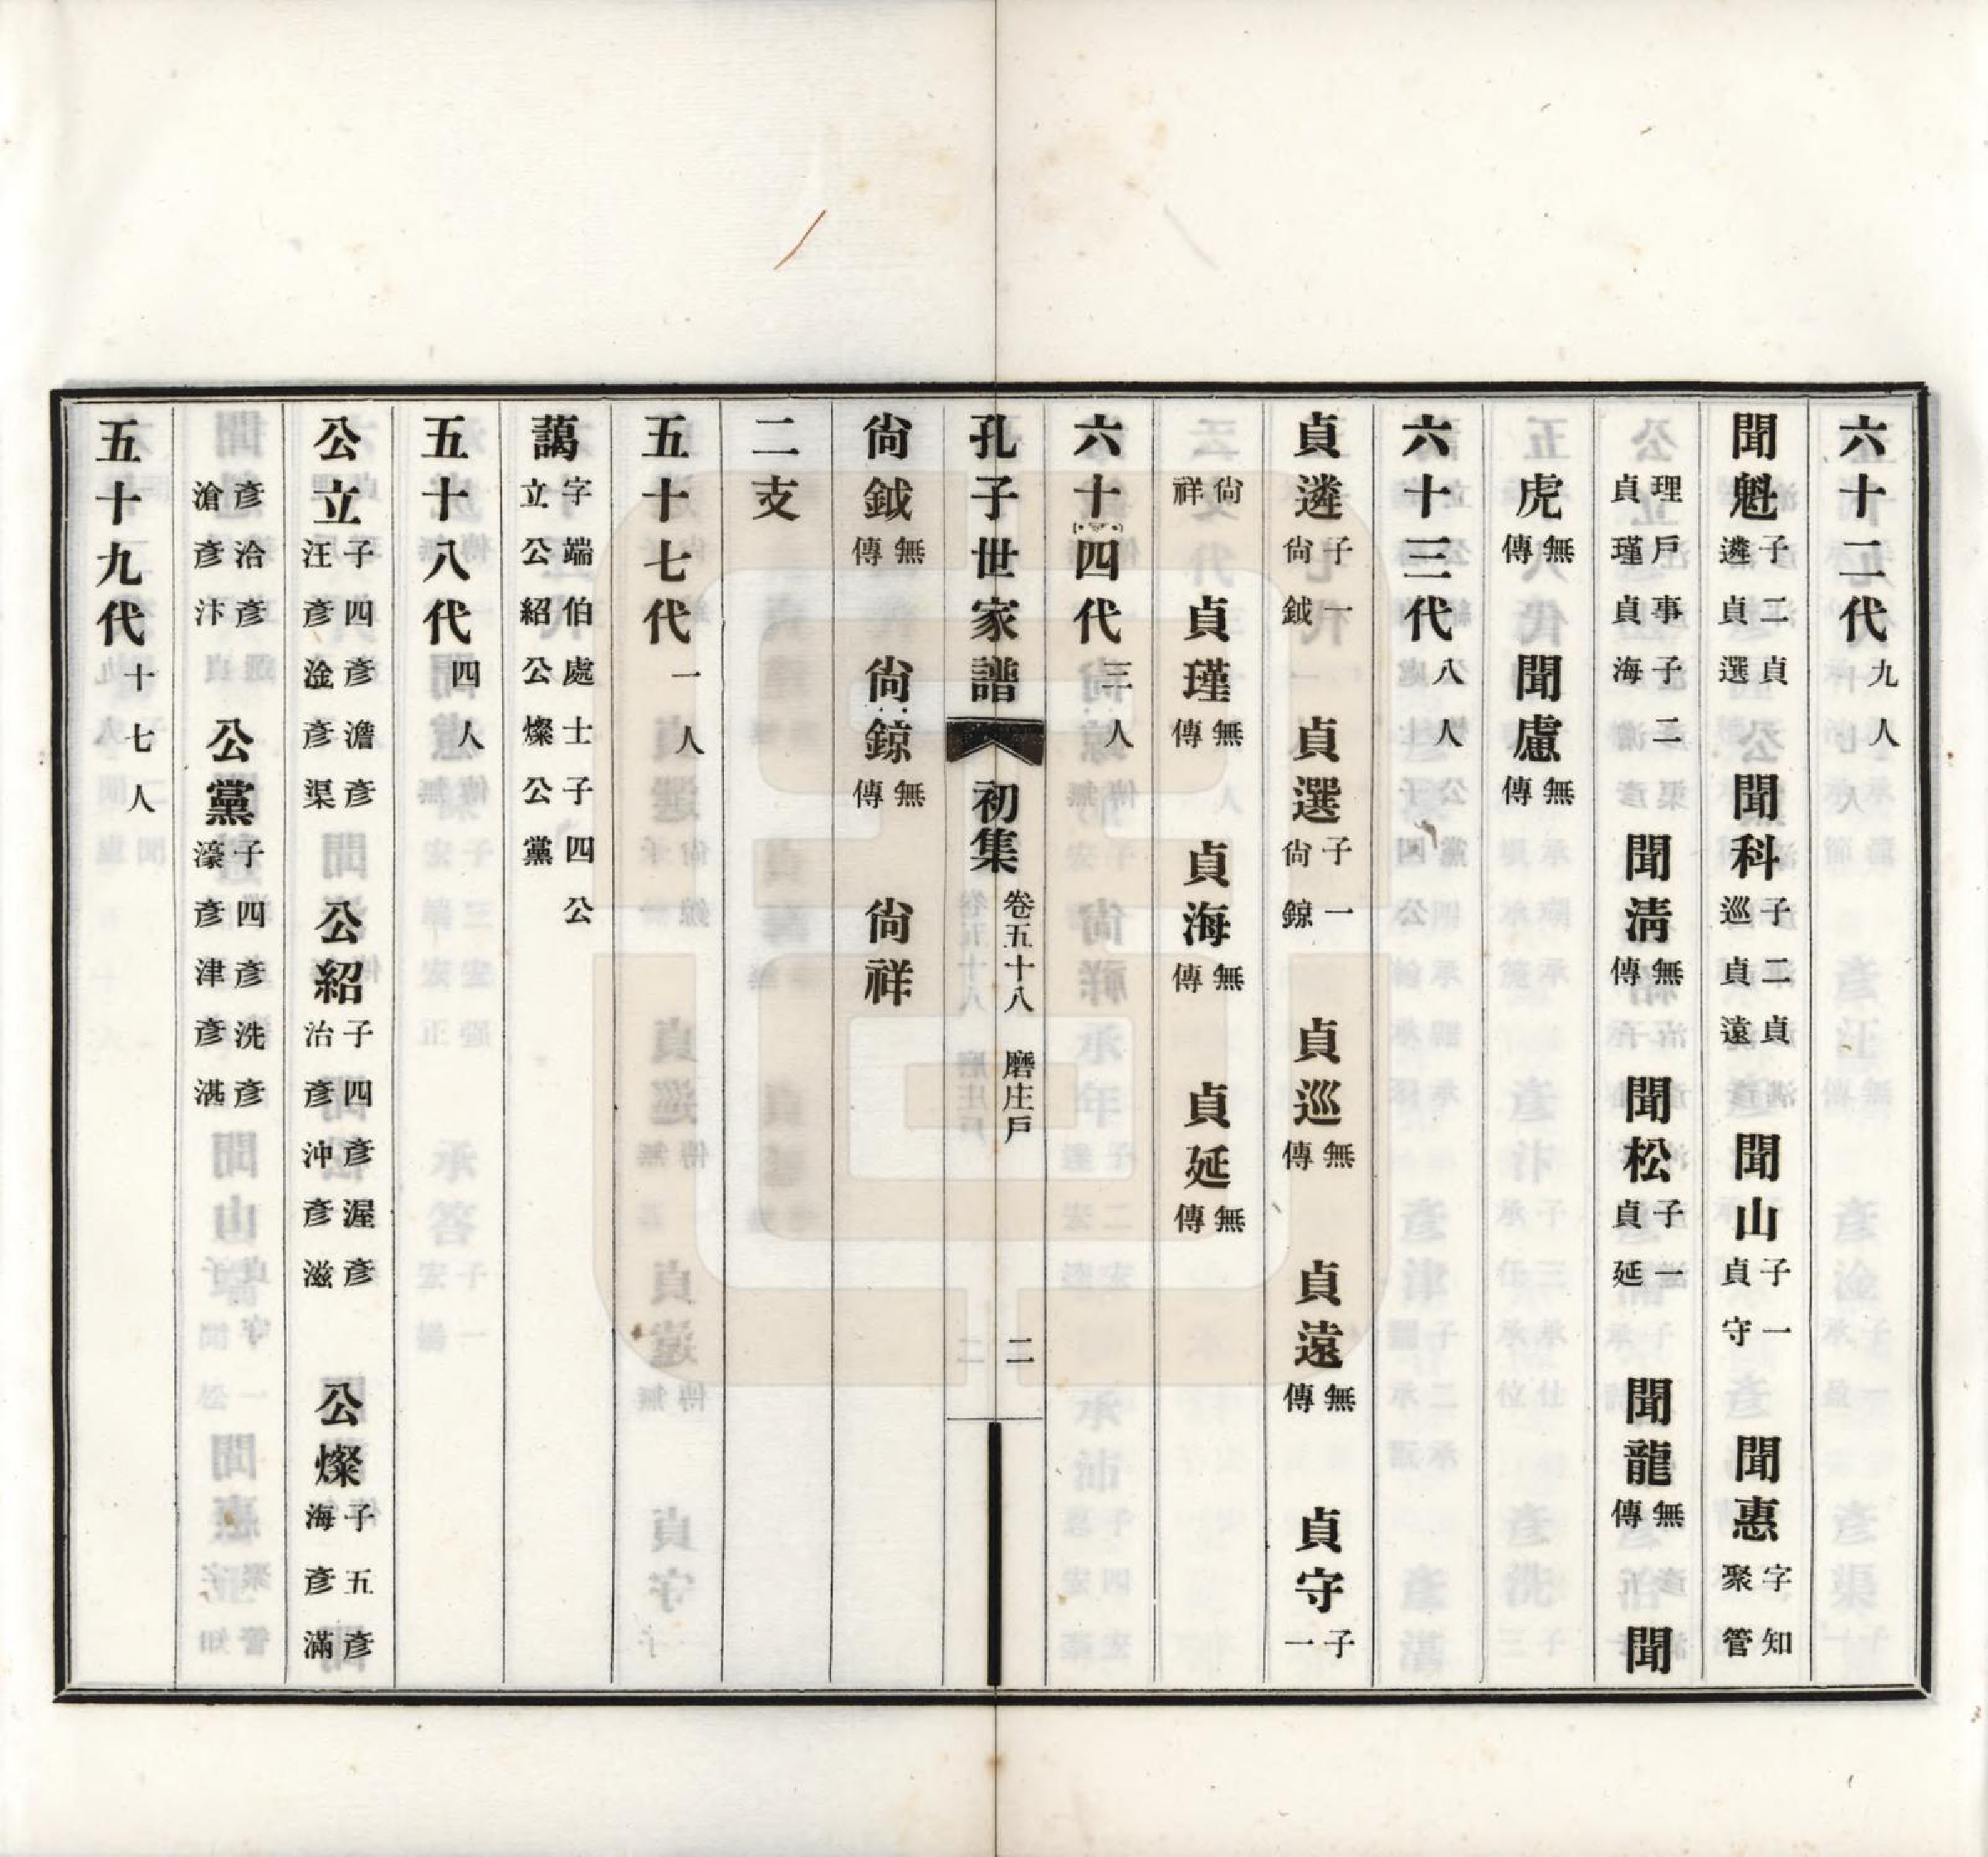 六十二代九人
聞魁子二貞遴貞選　聞科子二貞巡貞遠　聞山子一貞守　聞惠字知聚管
理戶事子二貞瑾貞海　聞淸無傳　聞松子一貞延　聞龍無傳　聞
虎無傳　聞慮無傳
六十三代八人
貞遴子一尙鉞　貞選子一尙鍄　貞巡無傳　貞遠無傳　貞守子一
尙祥　貞瑾無傳　貞海無傳　貞延無傳
六十四代三人
孔子世家譜　初集　卷五十八　磨庄戶　二
尙鉞無傳　尙鍄無傳　尙祥
二支
五十七代一人
譪字端伯處士子四公立公紹公燦公黨
五十八代四人
公立子四彥澹彥汪彥淦彥渠　公紹子四彥渥彥治彥沖彥滋　公燦子五彥海彥滿
彥洽彥滄彥汴　公黨子四彥洗彥濠彥津彥湛
五十九代十七人